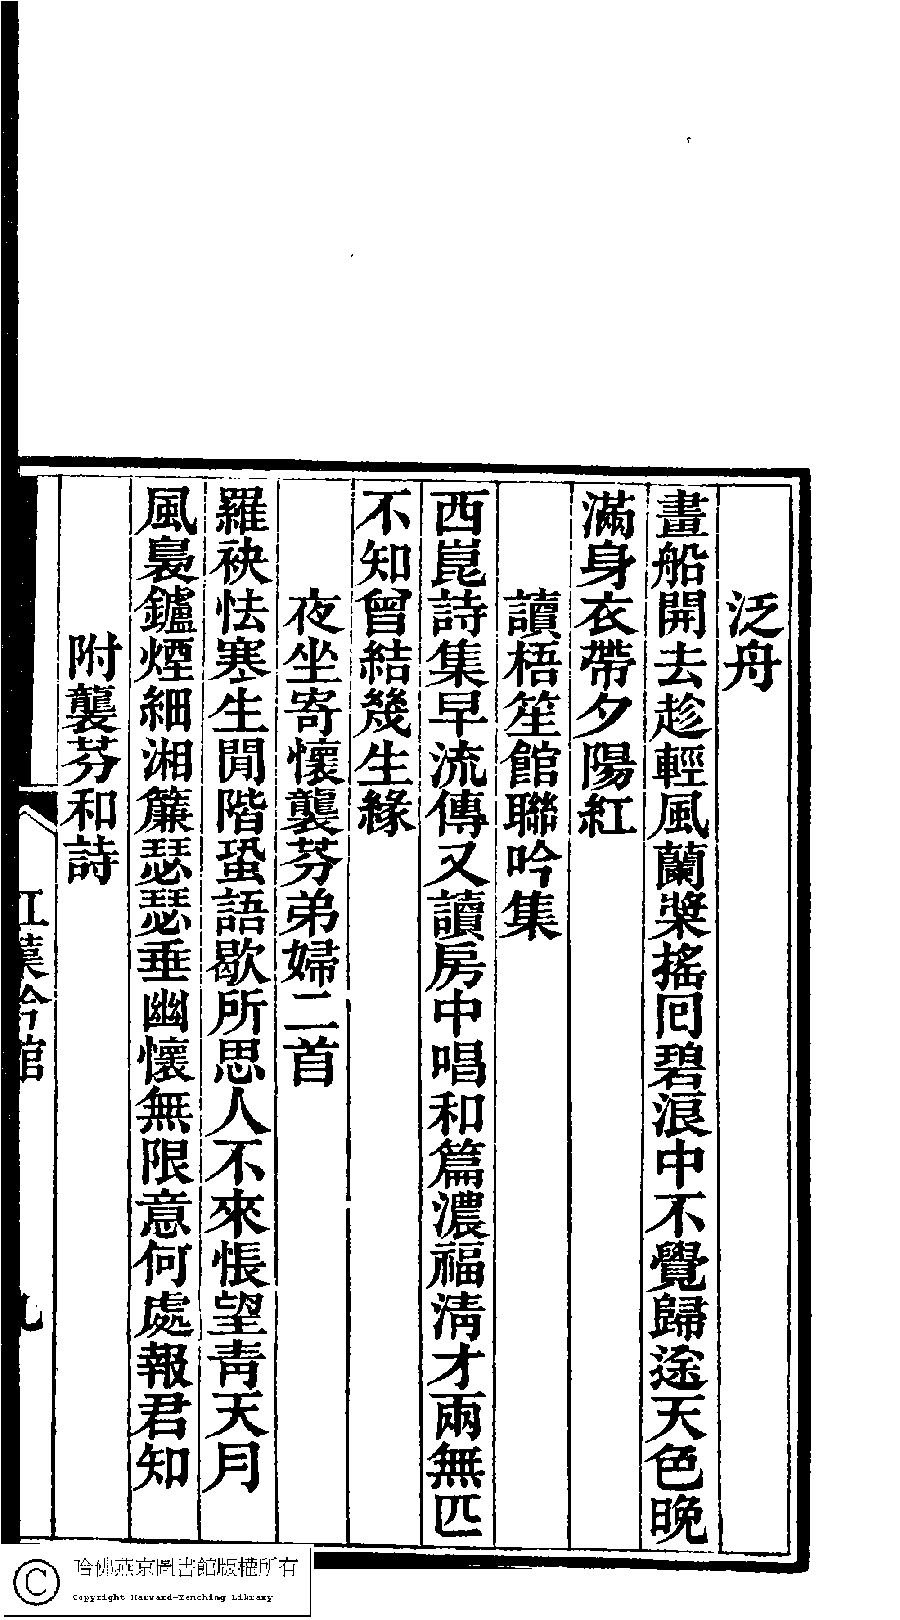 泛舟
畫船開去趁輕風蘭槳搖囘碧浪中不覺歸途天色晚
滿身衣帶夕陽紅
讀梧笙館聯吟集
西崑詩集早流傳又讀房中唱和篇濃福淸才兩無匹
不知曾結幾生緣
夜坐寄懷襲芬弟婦二首
羅袂怯寒生閒階蛩語歇所思人不來悵望靑天月
風裊鑪煙細湘簾瑟瑟垂幽懷無限意何處報君知
附襲芬和詩
吟館
九
哈佛燕京圖書館版權所有
Copyright Harvard-Yenching Library